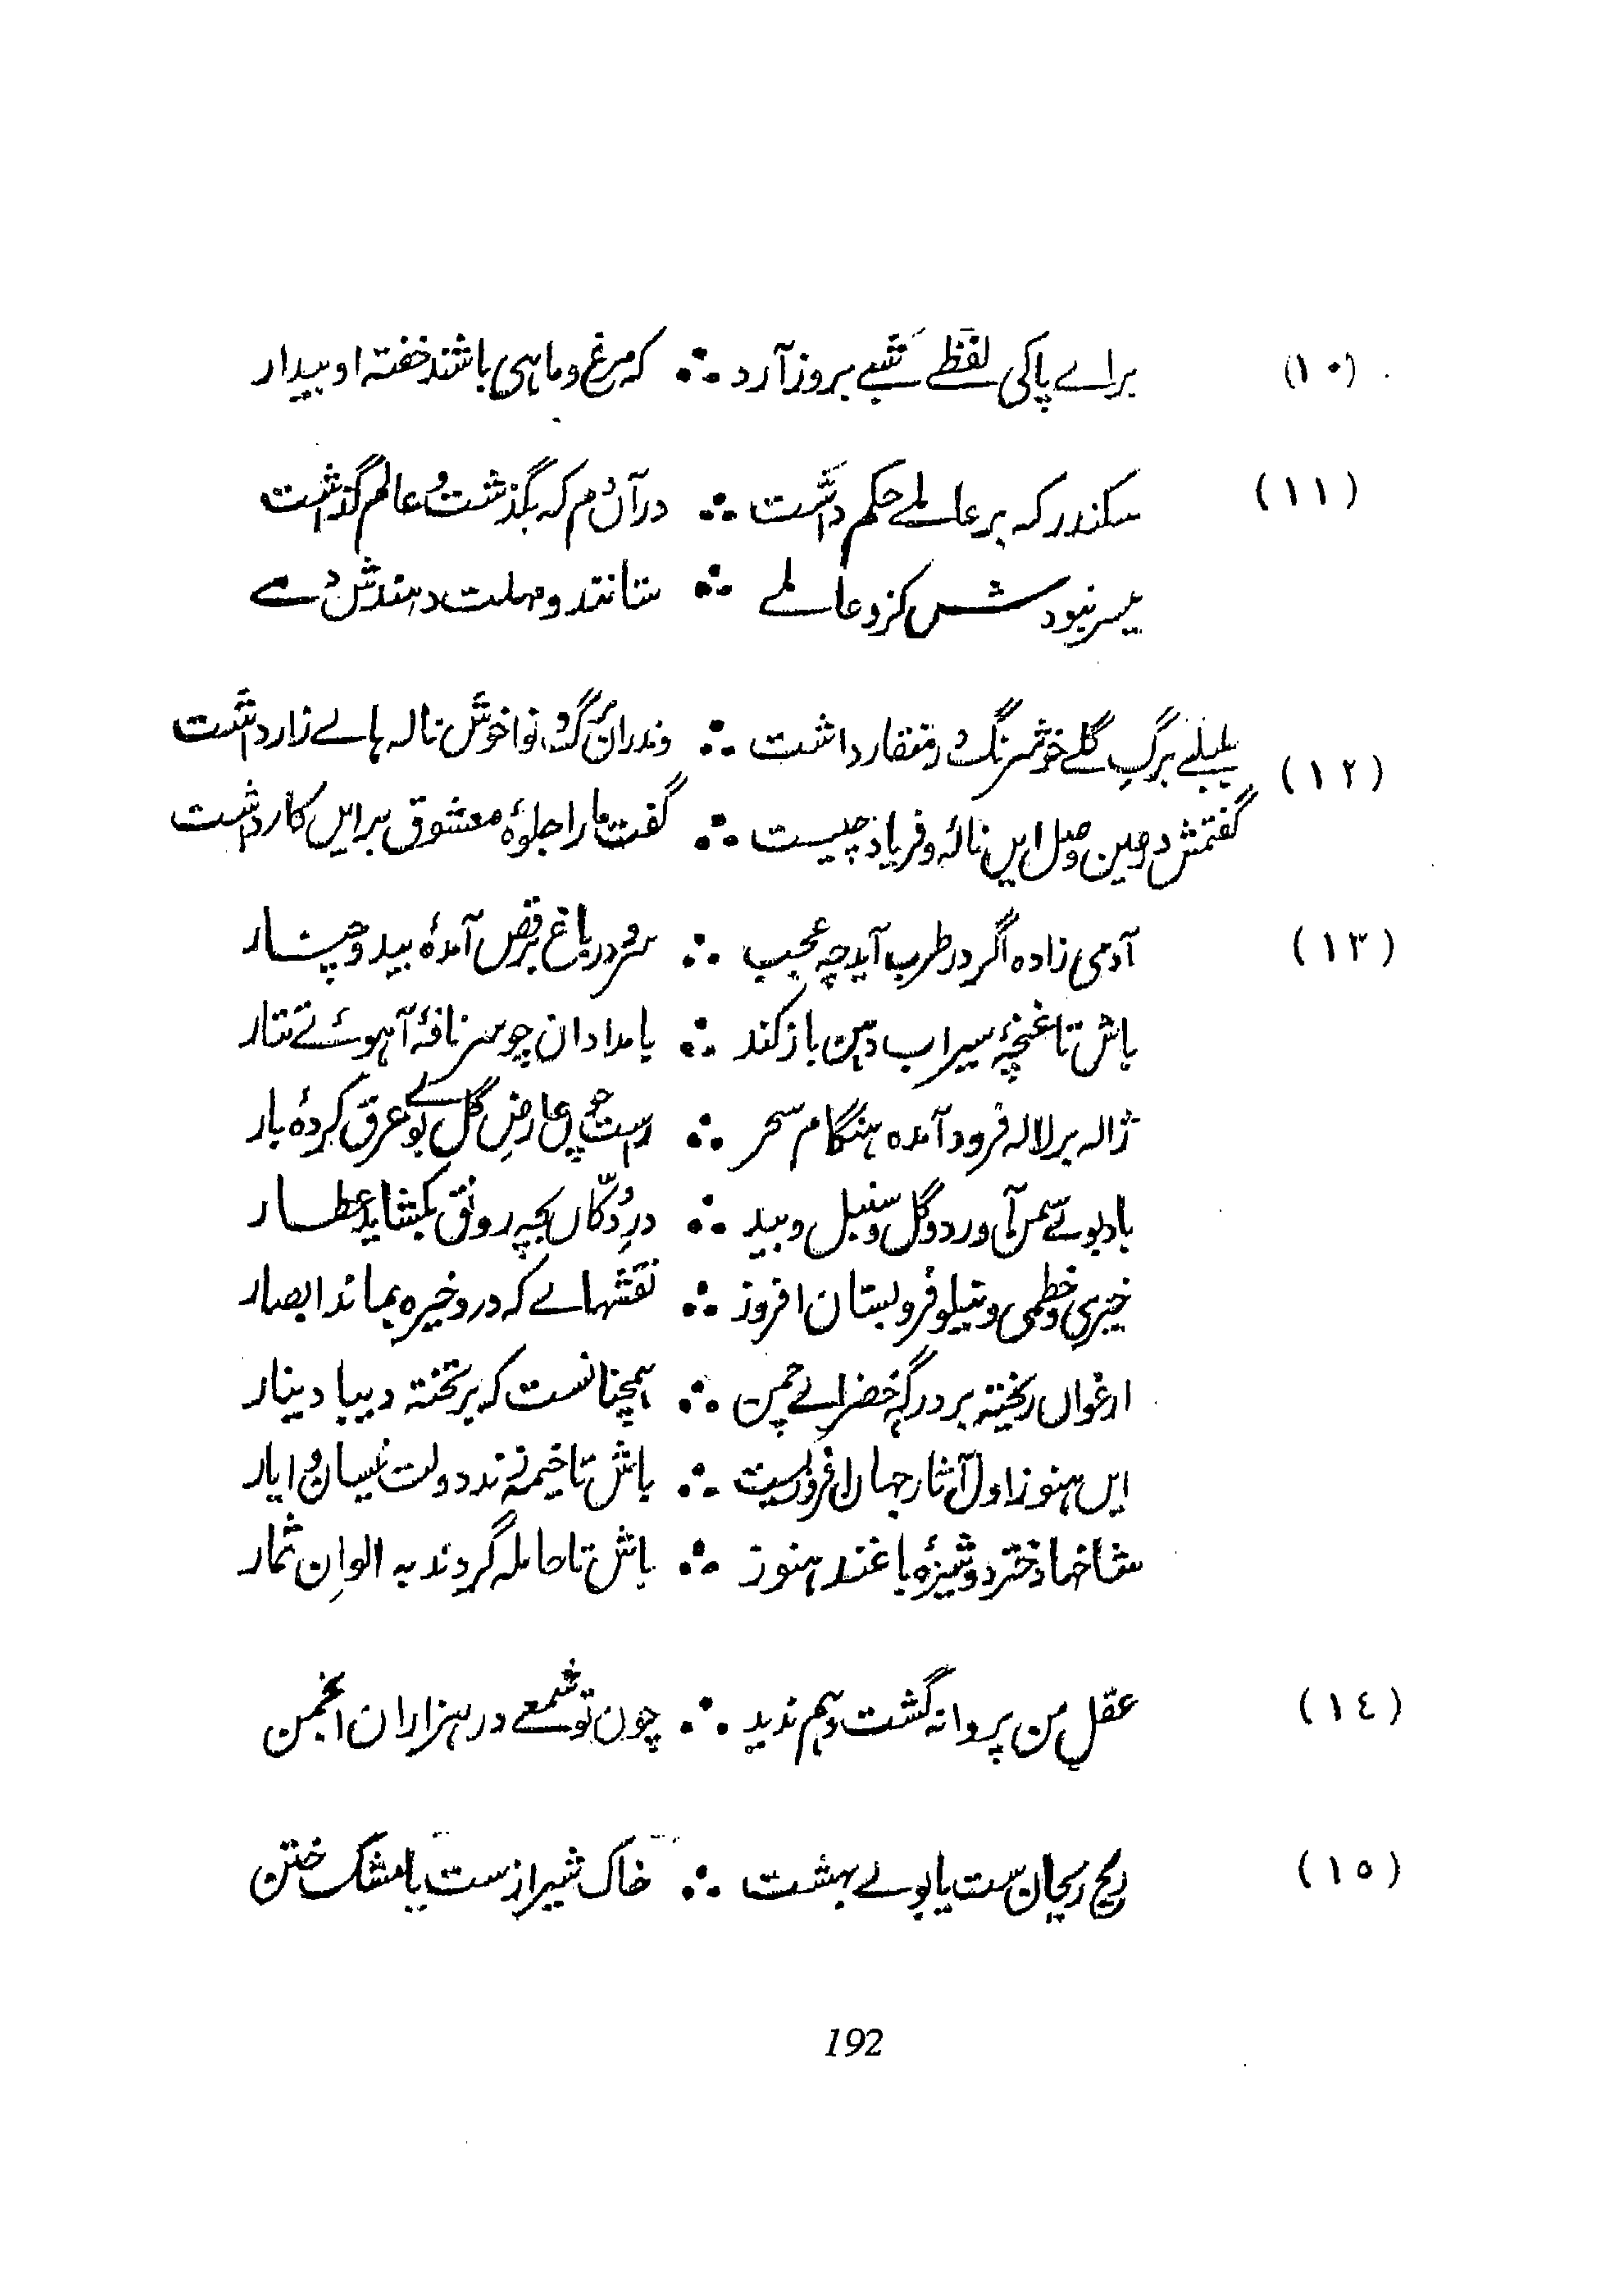 (۱۰) براے پاکی لفظے شبے بروز آرد ∴ کہ مرغ و ماہی باشند خفتہ او بیدار
(۱۱) سکندر کہ بر عالمے حکم داشت ∴ در آں دم کہ بگذشت و عالم گذاشت
میسر نبودش کزو عالمے ∴ ستانند و مہلت دہندش دمے
(۱۲) بلبلے برگِ گلے خوشرنگ در منقار داشت ∴ وندراں برگ و نوا خوش نالہ ہاے زار داشت
گفتمش در عین وصل ایں نالہ و فریاد چیست ∴ گفت ما را جلوۂ معشوق بر ایں کار داشت
(۱۳) آدمی زادہ اگر در طرب آید چہ عجب ∴ سرو در باغ برقص آمدہ بید و چنار
باش تا غنچۂ سیراب دہن باز کند ∴ بامدادان چو سر نافۂ آہوئے تتار
ژالہ بر لالہ فرود آمدہ ہنگام سحر ∴ راست چوں عارضِ گل بوے عرق کردۂ یار
باد بوئے سمن آورد و گل و سنبل و بید ∴ درِ دُکّاں بچہ رونق بکشاید عطار
خیری و خطمی و نیلوفر و بستان افروز ∴ نقشہاے کہ درو خیرہ بماند ابصار
ارغواں ریختہ بر درگہِ خضراے چمن ∴ ہمچنانست کہ بر تختہ دیبا دینار
ایں ہنوز اول آثار جہاں افروزیست ∴ باش تا خیمہ زند دولت نیسان و ایار
شاخہا دختر دوشیزۂ باغند ہنوز ∴ باش تا حاملہ گردند بہ الوانِ ثمار
(۱٤) عقلِ من پروانہ گشت و ہم ندید ∴ چون تو شمعے در ہزاران انجمن
(۱۵) ریح ریحان ست یا بوے بہشت ∴ خاک شیرازست یا مشک ختن
192